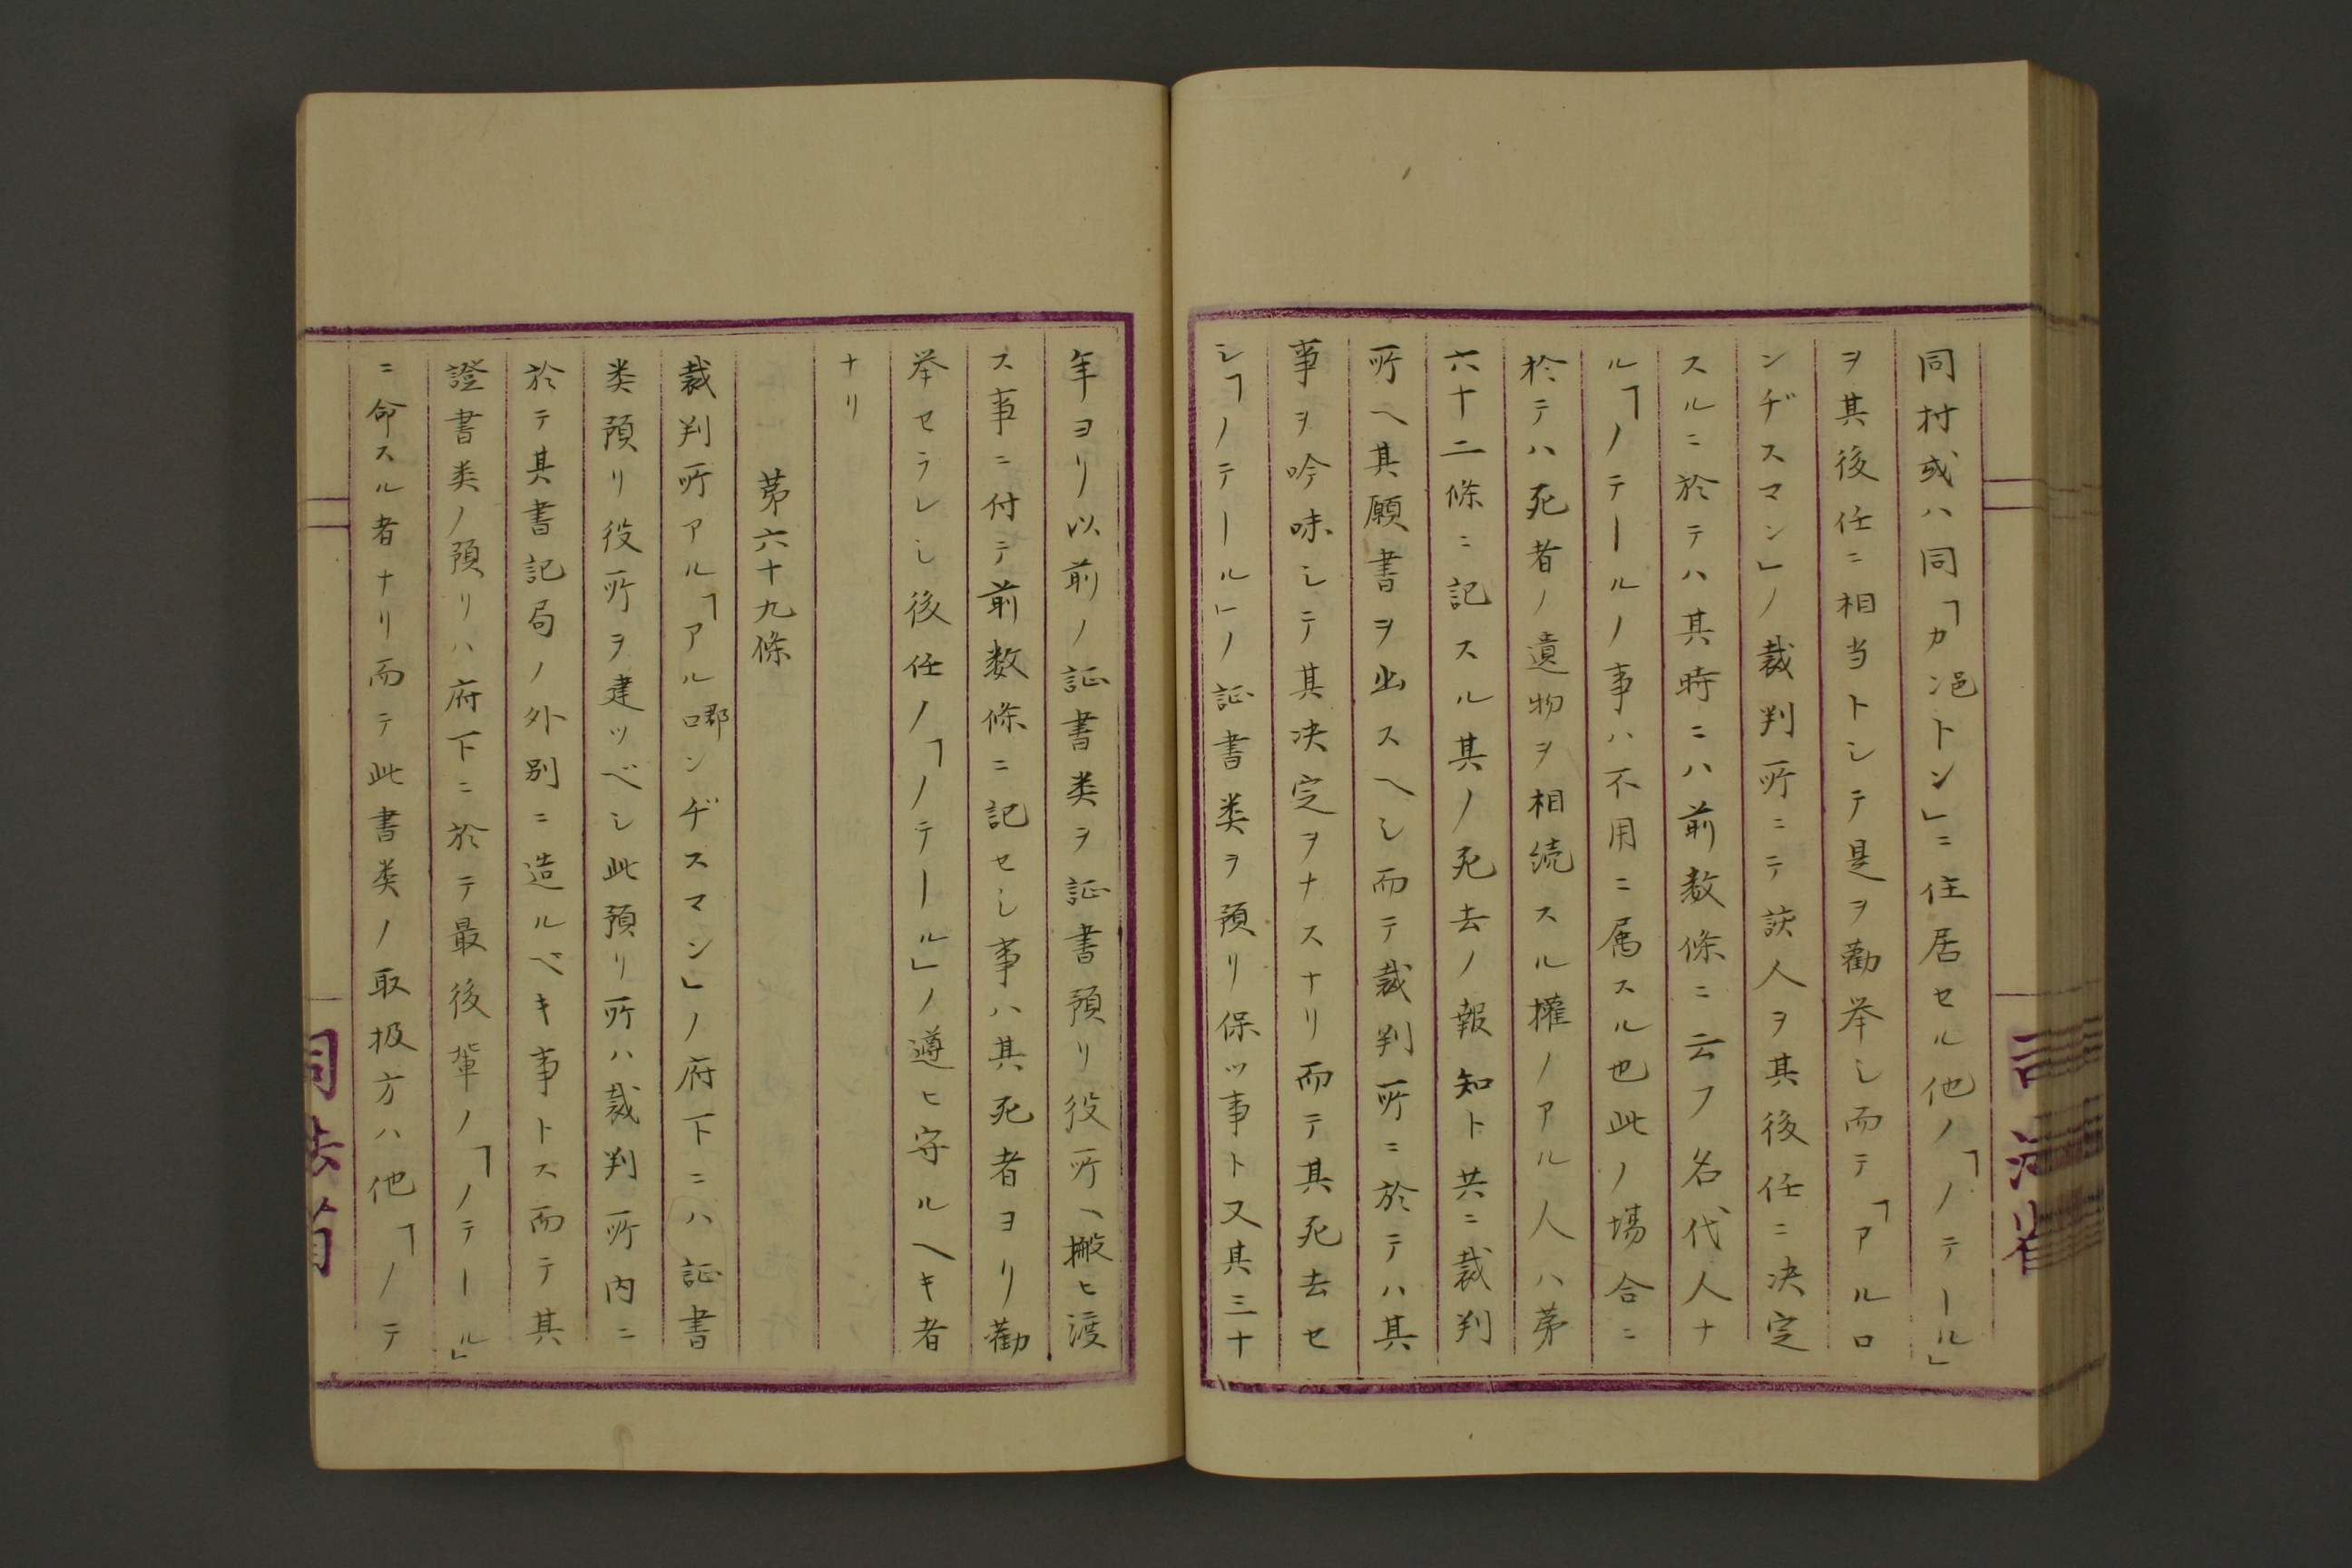 同村或ハ同「カ邑トン」ニ住居セル他ノ「ノテール」
ヲ其後任ニ相当トシテ是ヲ勸挙シ而テ「アルロ
ンヂスマン」ノ裁判所ニテ該人ヲ其後任ニ决定
スルニ於テハ其時ニハ前数條ニ云フ名代人ナ
ル「ノテールノ事ハ不用ニ属スル也此ノ場合ニ
於テハ死者ノ遺物ヲ相続スル權ノアル人ハ苐
六十二條ニ記スル其ノ死去ノ報知ト共ニ裁判
所ヘ其願書ヲ出スヘシ而テ裁判所ニ於テハ其
事ヲ吟味シテ其决定ヲナスナリ而テ其死去セ
シ「ノテール」ノ証書类ヲ預リ保ッ事ト又其三十
年ヨリ以前ノ証書类ヲ証書預リ役所ヘ搬ヒ渡
ス事ニ付テ前数條ニ記セシ事ハ其死者ヨリ勸
挙セラレシ後任ノ「ノテール」ノ遵ヒ守ルヘキ者
ナリ
苐六十九條
裁判所アル「アル郡ロンヂスマン」ノ府下ニハ証書
类預リ役所ヲ建ツベシ此預リ所ハ裁判所内ニ
於テ其書記局ノ外別ニ造ルベキ事トス而テ其
證書类ノ預リハ府下ニ於テ最後輩ノ「ノテール」
ニ命スル者ナリ而テ此書类ノ取扱方ハ他「ノテ
司法省